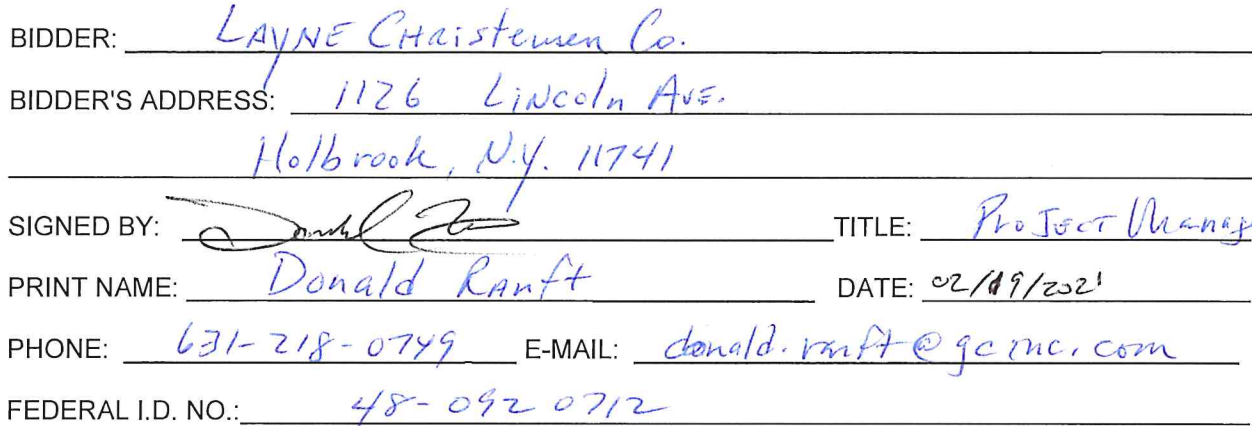 BIDDER: Layne Christensen Co.
BIDDER'S ADDRESS: 1126 Lincoln Ave.
Holbrook, N.Y. 11741
SIGNED BY: TITLE: Project Manag
PRINT NAME: Donald Ranft DATE: 02/19/2021
PHONE: 631-218-0749 E-MAIL: donald.ranft@gcinc.com
FEDERAL I.D. NO.: 48-0920712